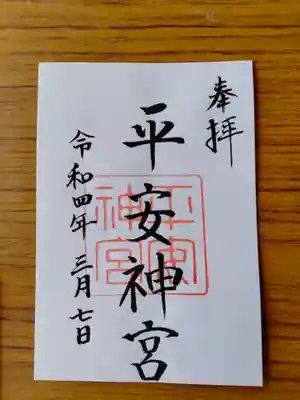 奉拝
平安神宮
平安神宮
令和四年 三月七日